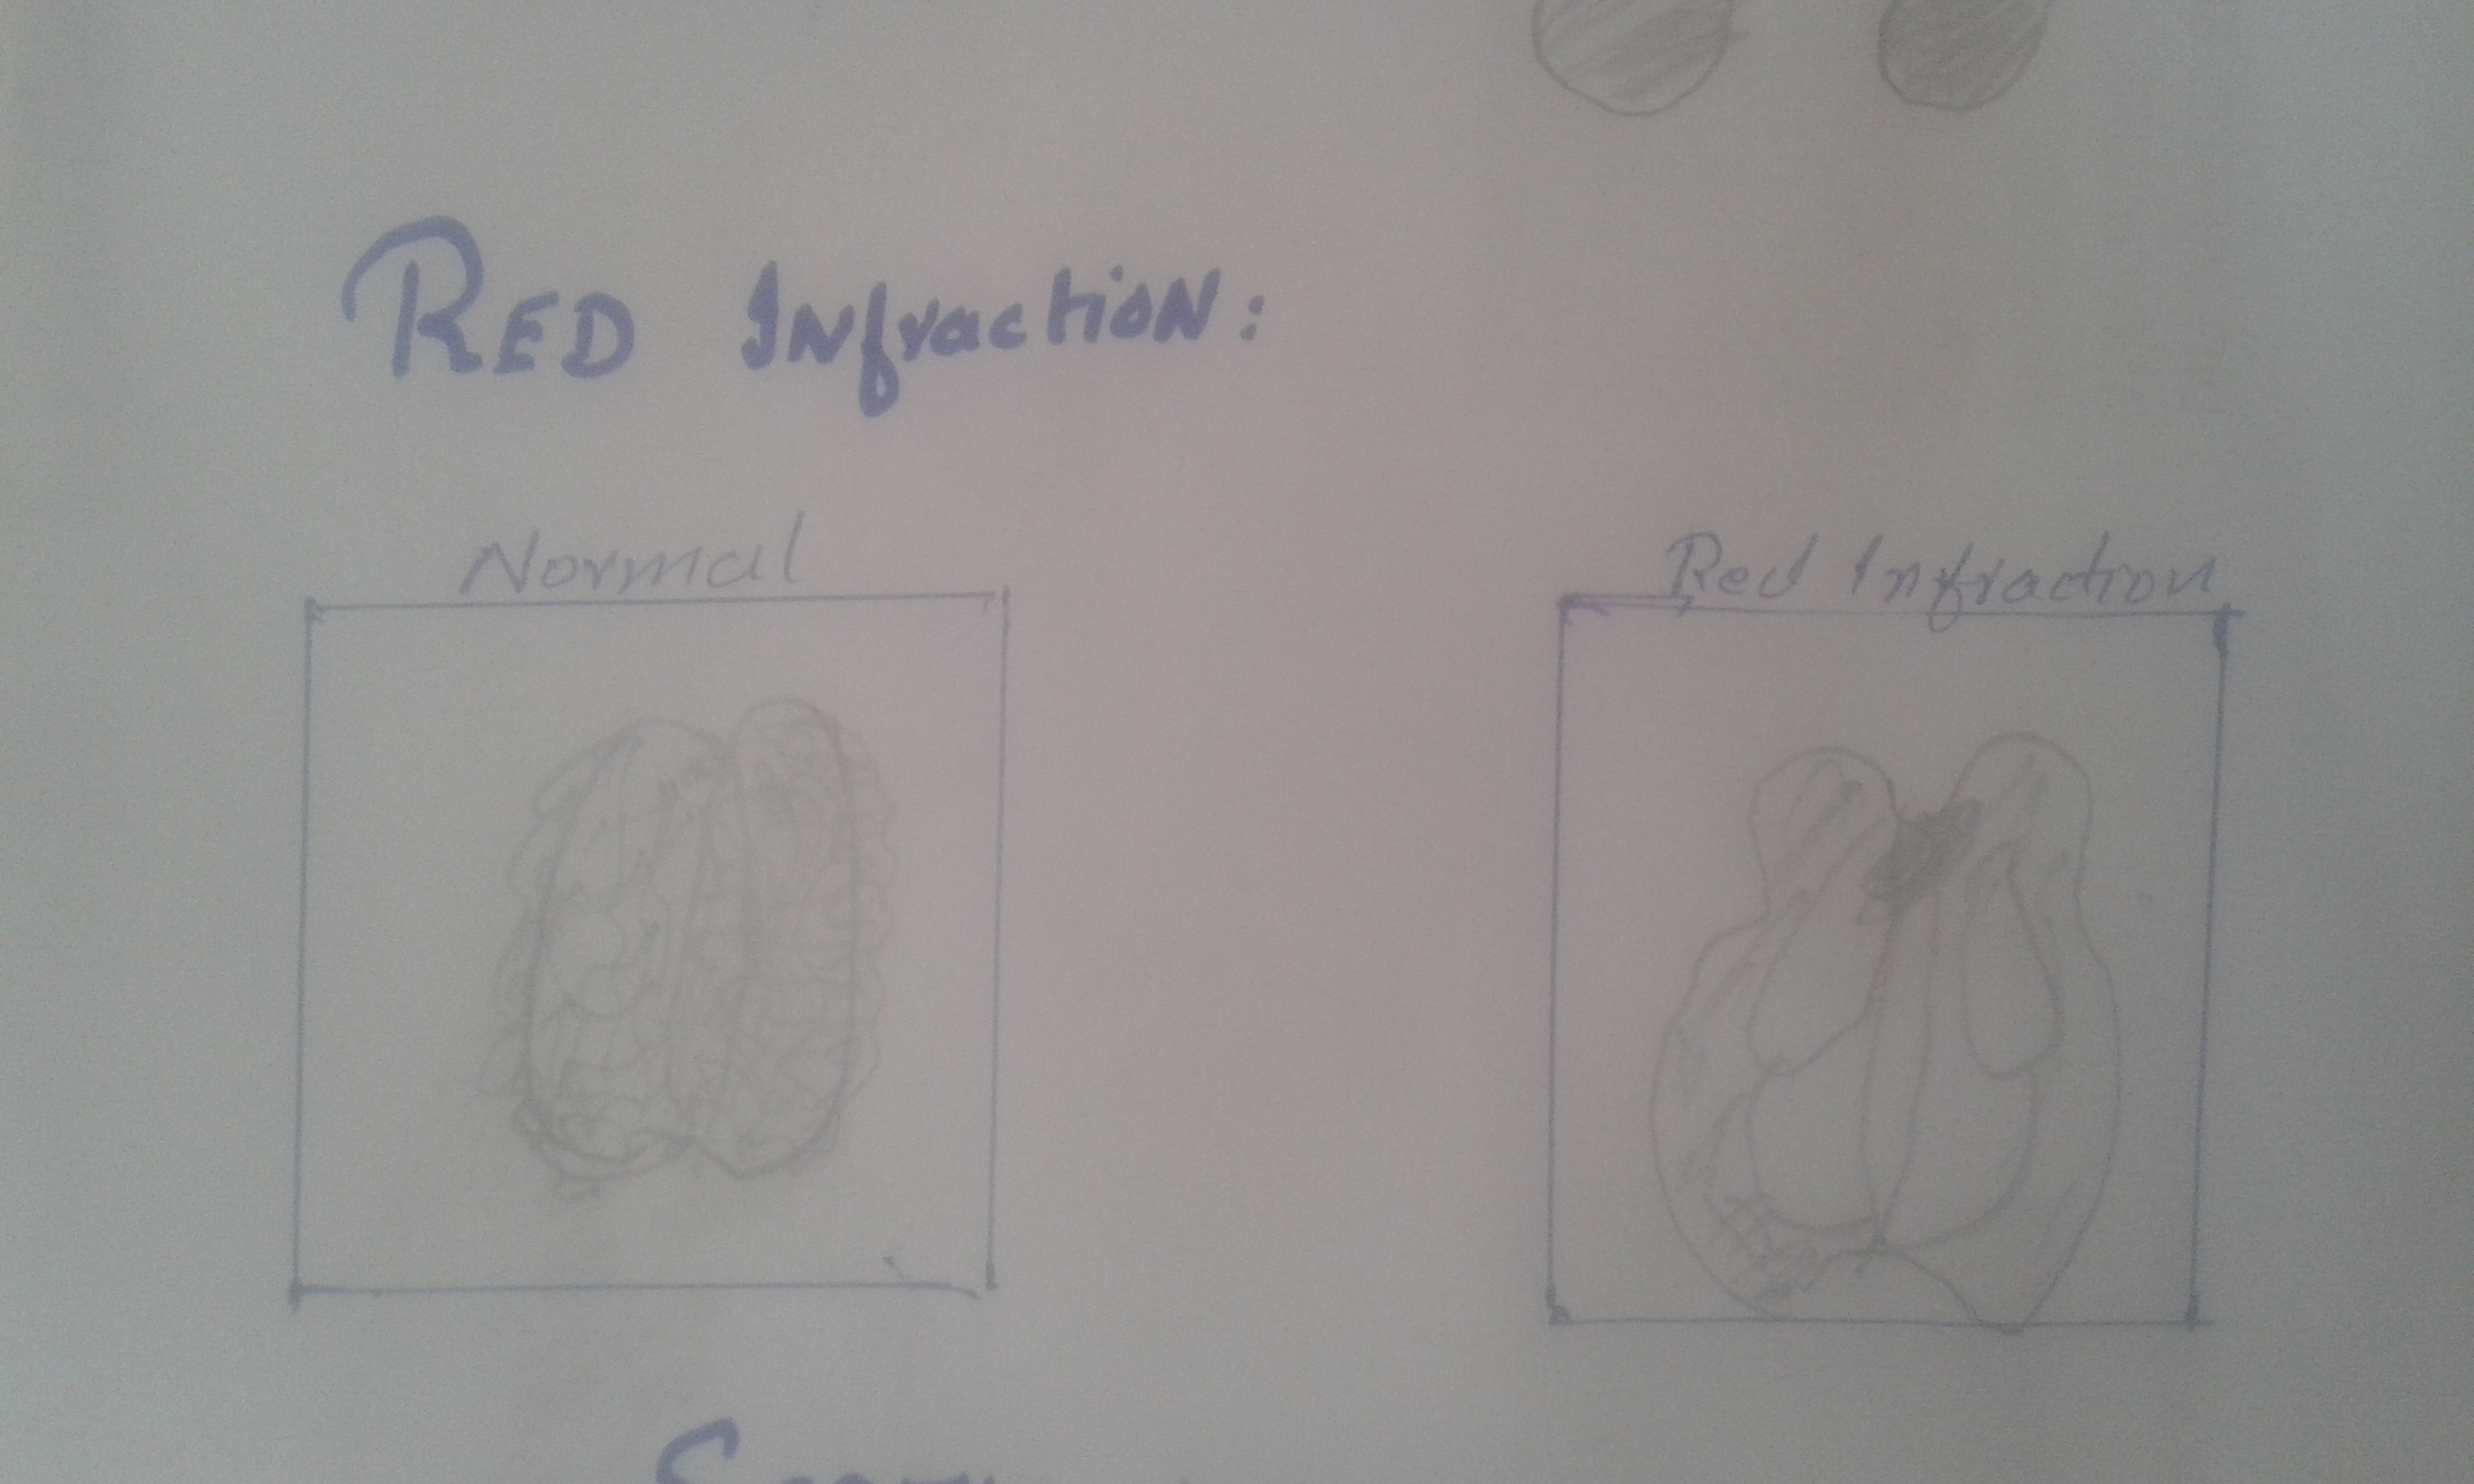 RED Infraction:
Normal
Red Infraction